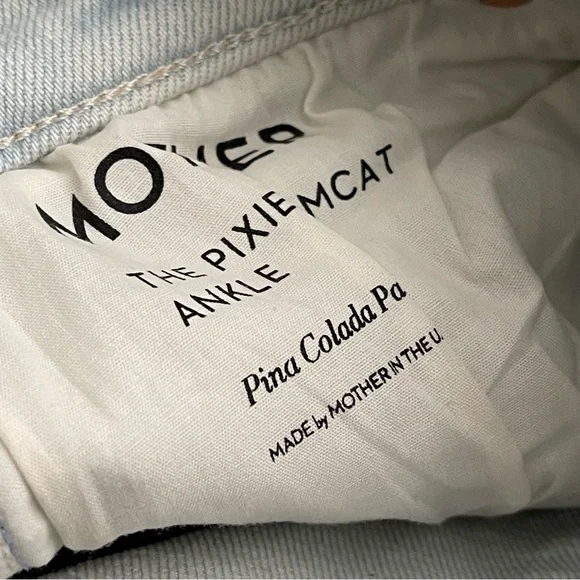 MOTHER
THE PIXIE MCAT
ANKLE
Pina Colada Pa
MADE by MOTHER IN THE U.